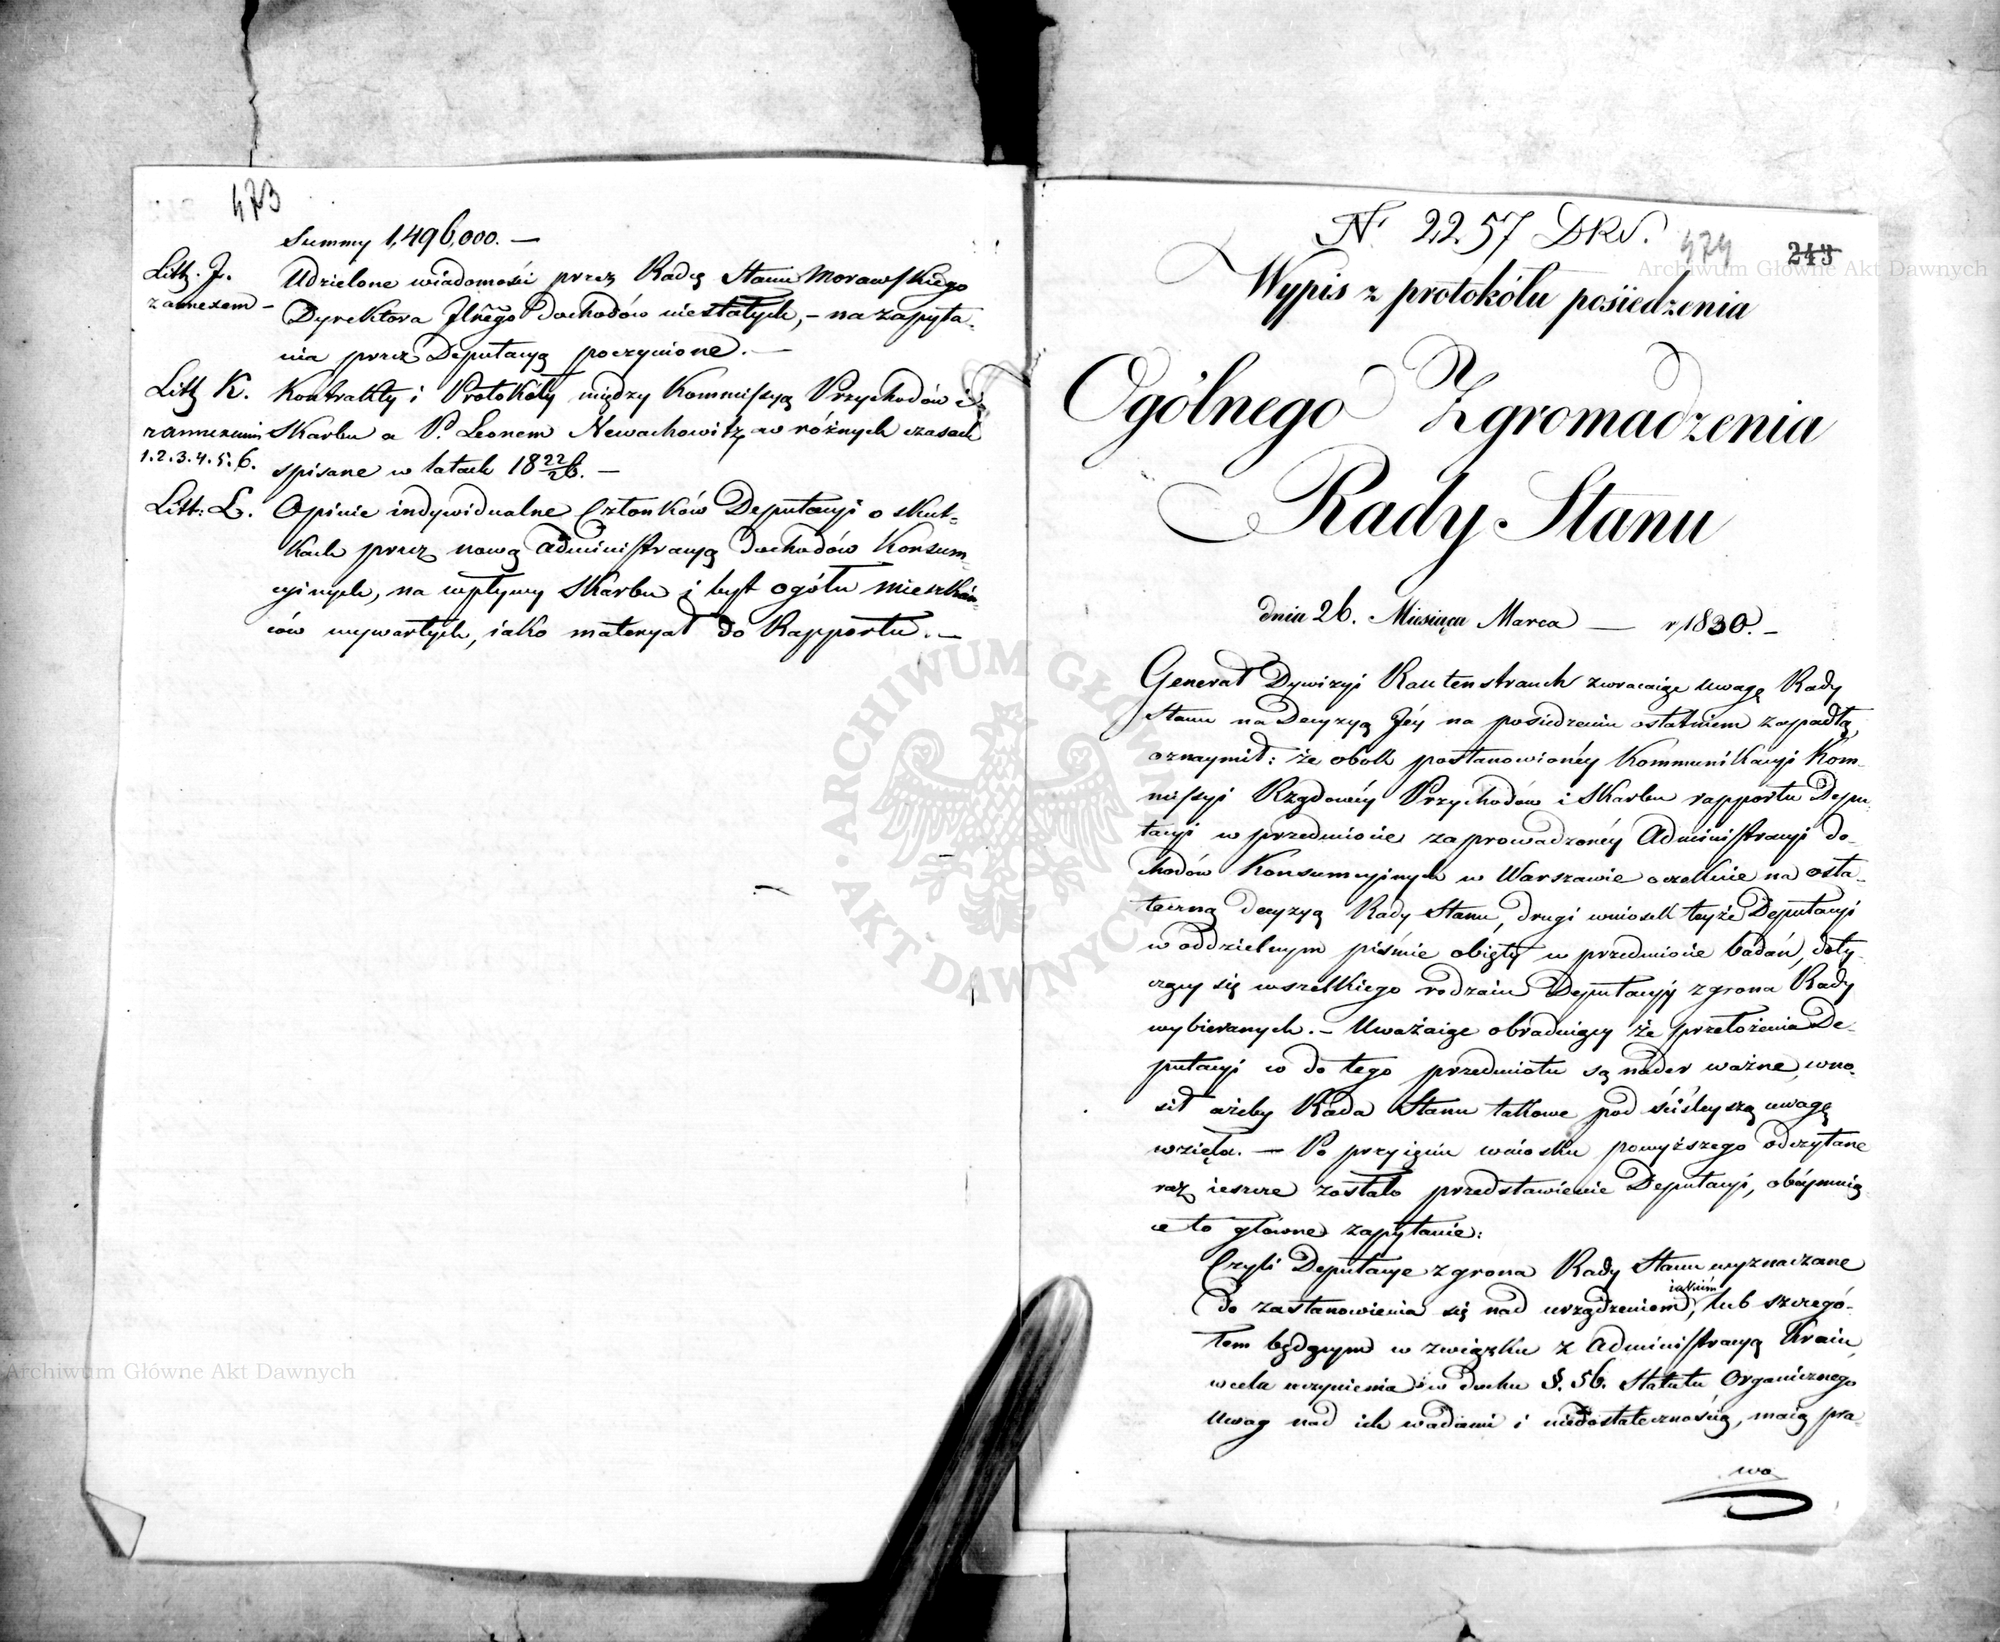 473
Summy 1,496,000. —
Litt. J. Udzielone wiadomości przez Radcę Stanu Morawskiego
z annexem — Dyrektora Jlńego dochodów niestałych, — na zapyta-
nia przez Deputacyą poczynione. —
Litt K. Kontrakty i Protokóły między Kommissyą Przychodów i
z annexami Skarbu a P. Leonem Newachowitz w różnych czasach
1.2.3.4.5.6. spisane w latach 18 22/26. —
Litt: L. Opinie indywidualne Członków Deputacyi o skut-
kach przez nową administracyą dochodów Konsum-
cyinych, na wpływy Skarbu i byt ogółu mieszkań-
ców wywartych, iako materyał do Rapportu. —
Nr 2257 DRS.
474 243
Wypis z protokółu posiedzenia
Ogólnego Zgromadzenia
Rady Stanu
dnia 26. Miesiąca Marca — r 1830. —
Generał Dywizyi Rautenstrauch zwracaiąc uwagę Rady
Stanu na Decyzyą Jéy na posiedzeniu ostatniem zapadłą,
oznaymił: że obok postanowionéy Kommunikacyi Kom-
missyi Rządowéy Przychodów i Skarbu rapportu Depu-
tacyi w przedmiocie zaprowadzonéy Administracyi do-
chodów Konsumcyinych w Warszawie oczekuie na osta-
teczną decyzyą Rady Stanu, drugi wniosek teyże Deputacyi
w oddzielnym piśmie obięty w przedmiocie badań, doty-
czący się wszelkiego rodzaiu Deputacyy z grona Rady
wybieranych. — Uważaiąc obraduiący że przełożenia De-
putacyi co do tego przedmiotu są nader ważne, wno-
sił ażeby Rada Stanu takowe pod ściśleyszą uwagę
wzięła. — Po przyięciu wniosku powyższego odczytane
raz ieszcze zostało przedstawienie Deputacyi, obéymuią-
ce to główne zapytanie:
Czyli Deputacye z grona Rady Stanu wyznaczane
do zastanowienia się nad urządzeniem iakiém, lub szczegó-
łem będącym w związku z Administracyą Kraiu,
w celu uczynienia w duchu §. 56. Statutu Organicznego
Uwag nad ich wadami i niedostatecznością, maią pra-
wo
Archiwum Główne Akt Dawnych
Archiwum Główne Akt Dawnych
ARCHIWUM GŁÓWNE AKT DAWNYCH